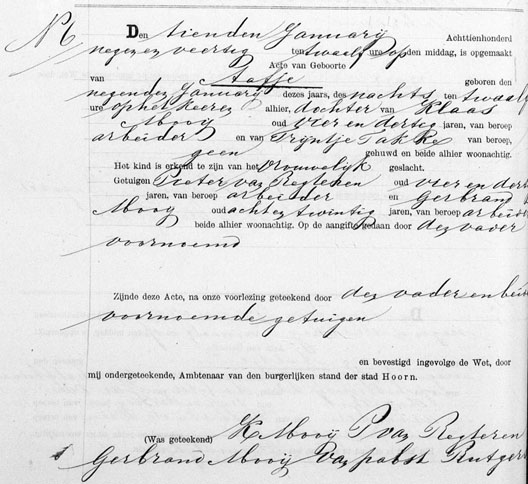 Den tienden Januarij Achttienhonderd
negen en veertig ten twaalf ure op den middag, is opgemaakt
Acte van Geboorte
van Aafje geboren den
negenden Januarij dezes jaars, des nachts ten twaalf
ure op het Keeren alhier, dochter van Klaas
Mooij oud vier en dertig jaren, van beroep
arbeider en van Trijntje Takke van beroep,
geen gehuwd en beide alhier woonachtig.
Het kind is erkend te zijn van het vrouwelijk geslacht.
Getuigen Pieter van Regteren oud vier en dert
jaren, van beroep arbeider en Gerbrand
Mooij oud acht en twintig jaren, van beroep arbeid
beide alhier woonachtig. Op de aangifte gedaan door den vader
voornoemd
Zijnde deze Acte, na onze voorlezing geteekend door den vader en beid
voornoemde getuigen
en bevestigd ingevolge de Wet, door
mij ondergeteekende, Ambtenaar van den burgerlijken stand der stad Hoorn.
(Was geteekend) K Mooij P van Regteren
Gerbrand Mooij Van pabst Rutgers